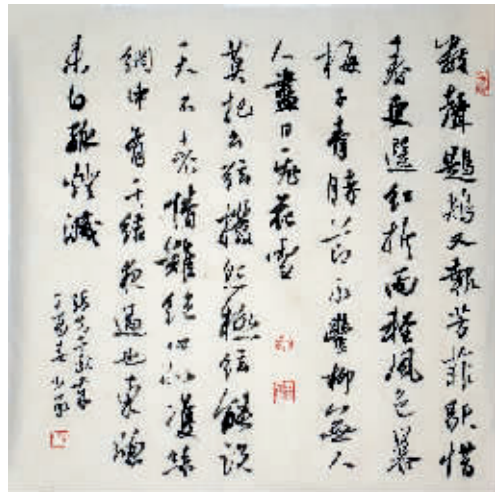 數聲鶗鴂又報芳菲歇惜
春更選紅折雨輕風色暴
梅子青時節永豐柳無人
人盡日飛花雪
莫把幺弦撥怨極弦能說
天不老情難絕心似雙絲
網中有千結夜過也東牕
未白孤燈滅
張先
丁亥春